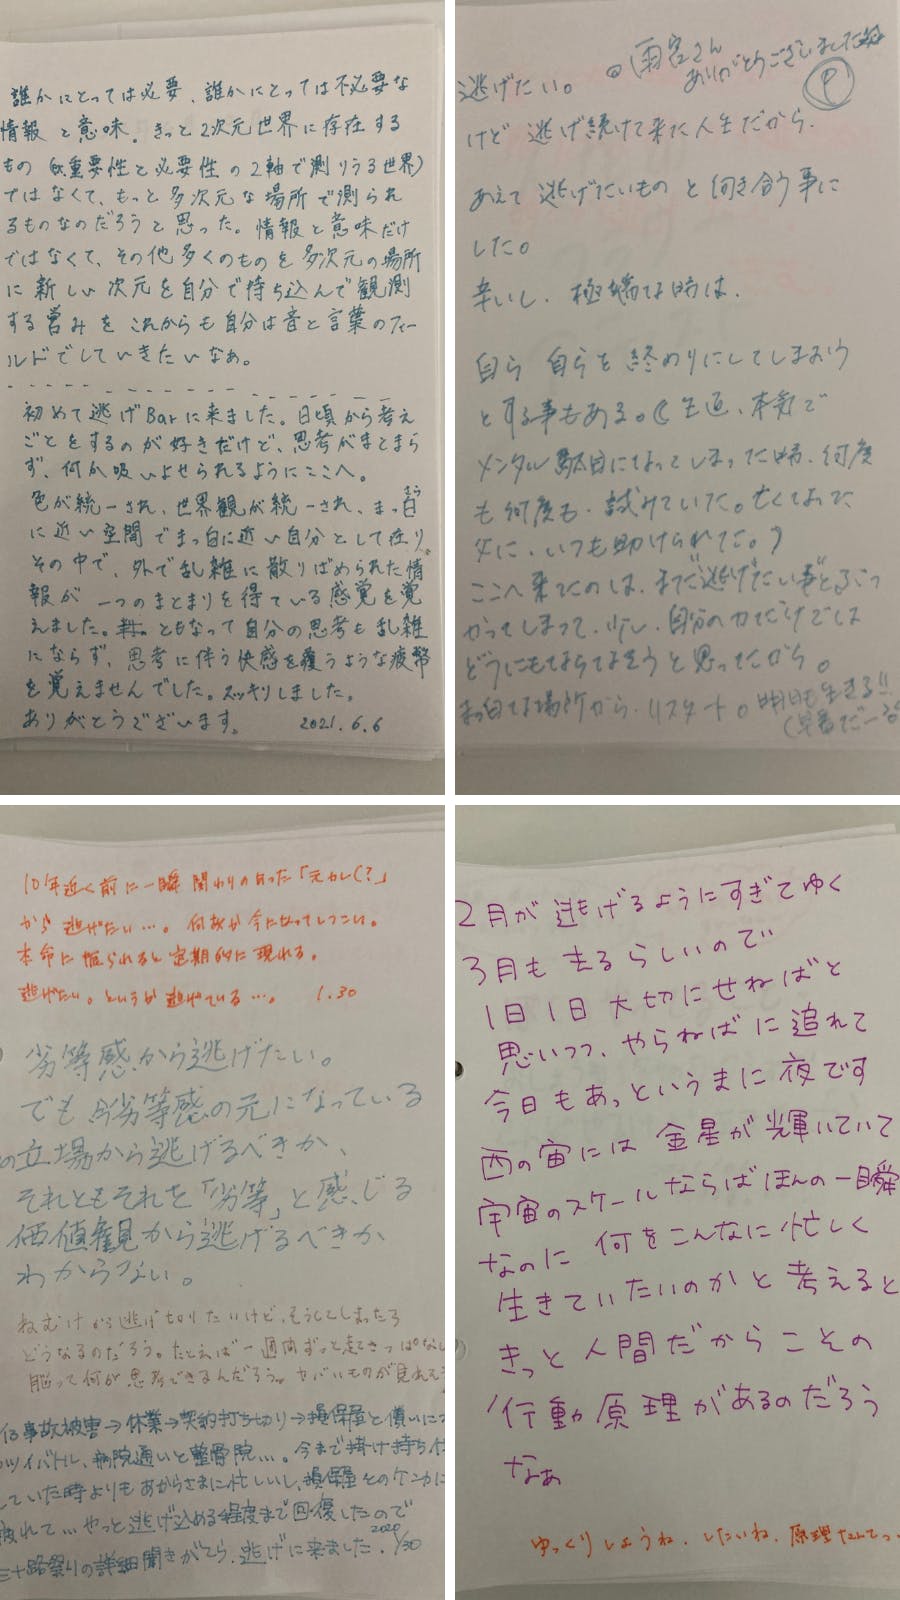 誰かにとっては必要、誰かにとっては不必要な
情報と意味。きっと2次元世界に存在する
もの(重要性と必要性の2軸で測りうる世界)
ではなくて、もっと多次元な場所で測られ
るものなのだろうと思った。情報と意味だけ
ではなくて、その他多くのものを多次元の場所
に新しい次元を自分で持ち込んで観測
する営みをこれからも自分は音と言葉のフィー
ルドでしていきたいなぁ。
初めて逃げBarに来ました。日頃から考え
ごとをするのが好きだけど、思考がまとまら
ず、何か吸いよせられるようにここへ。
色が統一され、世界観が統一され、まっ白
に近い空間でまっ白に近い自分として在り。
その中で、外で乱雑に散りばめられた情
報が一つのまとまりを得ている感覚を覚
えました。ともなって自分の思考も乱雑
にならず、思考に伴う快感を覆うような疲弊
を覚えませんでした。スッキリしました。
ありがとうございます。 2021.6.6
雨宮さん
ありがとうございました
逃げたい。
けど逃げ続けて来た人生だから、
あえて逃げたいものと向き合う事に
した。
辛いし、極端な時は、
自ら自らを終わりにしてしまおう
とする事もある。(生返、本気で
メンタル駄目になってしまった時、何度
も何度も、試みていた。亡くなった
父に、いつも助けられてた。)
ここへ来たのは、まだ逃げたい事とぶつ
かってしまって、少し、自分の力だけでは
どうにもならなそうと思ってたから。
まっ白な場所から、リスタート。明日も生きる!!
(早番だーる
10年近く前に一瞬関わりのあった「元カレ(?」
から逃げたい…。何故か今になってしつこい。
本命に振られると定期的に現れる。
逃げたい。というか逃げている…。 1.30
劣等感から逃げたい。
でも劣等感の元になっている
の立場から逃げるべきか、
それともそれを「劣等」と感じる
価値観から逃げるべきか
わからない。
ねむけから逃げ切りたいけど、そうしてしまったら
どうなるのだろう。たとえば一週間ずっと起きっぱなし
脳って何が思考できるんだろう。ヤバいものが見れそ
事故被害→休業→契約打ち切り→損保屋と償いにつ
ツイバトル、病院通いと整骨院…。今まで掛け持ち仕
していた時よりもあからさまに忙しいし、損保屋とのケンカに
疲れて…やっと逃げ込める程度まで回復したので
三十路祭りの詳細聞きがてら、逃げに来ました。2020 1/30
2月が逃げるようにすぎてゆく
3月も去るらしいので
1日1日大切にせねばと
思いつつ、やらねばに追れて
今日もあっというまに夜です
西の宙には金星が輝いていて
宇宙のスケールならばほんの一瞬
なのに何をこんなに忙しく
生きていたいのかと考えると
きっと人間だからこその
行動原理があるのだろう
なぁ
ゆっくりしようね、したいね、原理なんてっ